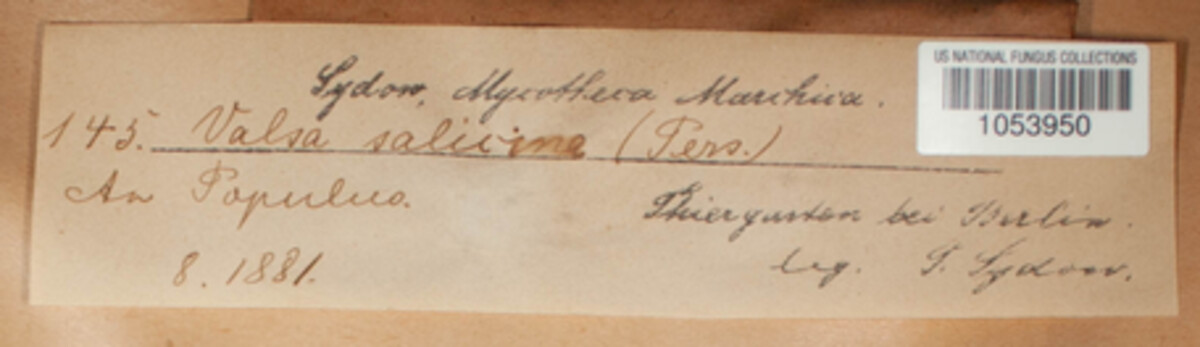 US NATIONAL FUNGUS COLLECTIONS
1053950
Sydow, Mycotheca Marchica.
145. Valsa salicina (Pers.)
An Populus.
Thiergarten bei Berlin.
8. 1881.
leg. P. Sydow.